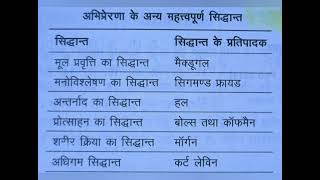 अभिप्रेरणा के अन्य महत्त्वपूर्ण सिद्धान्त
सिद्धान्त सिद्धान्त के प्रतिपादक
मूल प्रवृत्ति का सिद्धान्त मैक्डूगल
मनोविश्लेषण का सिद्धान्त सिगमण्ड फ्रायड
अन्तर्नाद का सिद्धान्त हल
प्रोत्साहन का सिद्धान्त बोल्स तथा कॉफमैन
शरीर क्रिया का सिद्धान्त मॉर्गन
अधिगम सिद्धान्त कर्ट लेविन